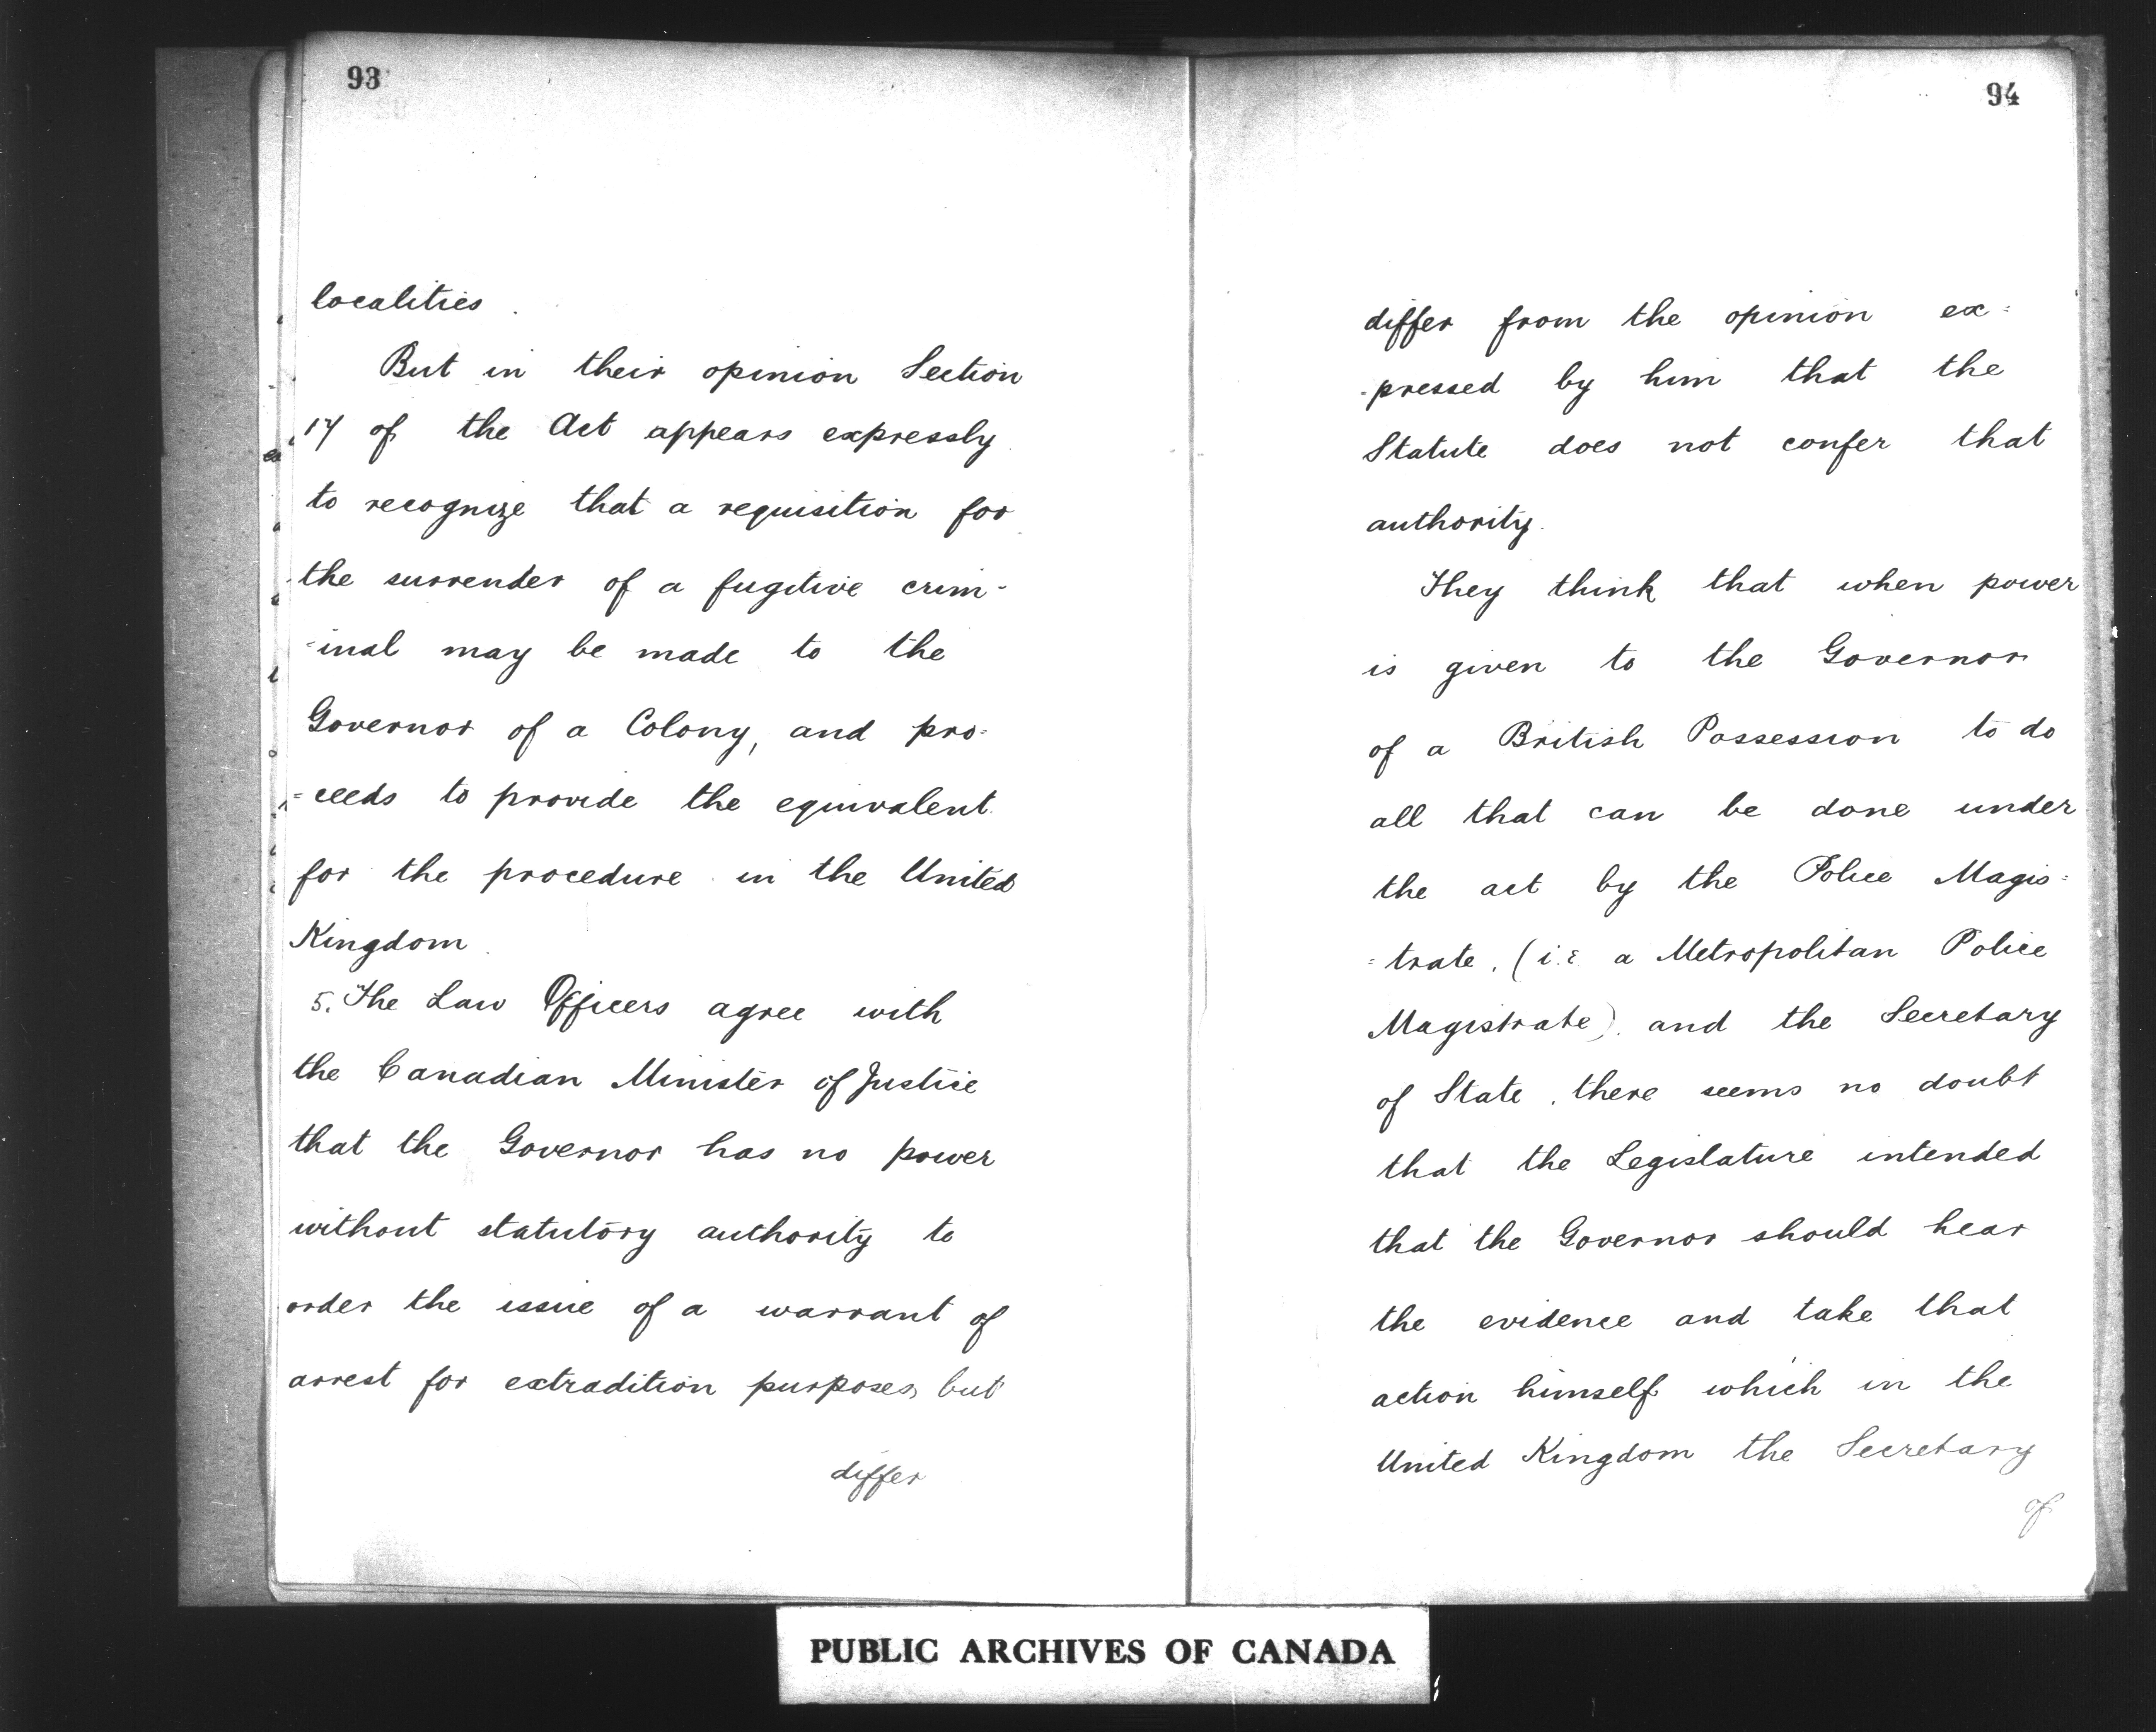 93
localities.
But in their opinion Section
17 of the Act appears expressly
to recognize that a requisition for
the surrender of a fugitive crim-
-inal may be made to the
Governor of a Colony, and pro=
=ceeds to provide the equivalent
for the procedure in the United
Kingdom.
5. The Law Officers agree with
the Canadian Minister of Justice
that the Governor has no power
without statutory authority to
order the issue of a warrant of
arrest for extradition purposes, but
differ
94
differ from the opinion ex=
-pressed by him that the
Statute does not confer that
authority.
They think that when power
is given to the Governor
of a British Possession to do
all that can be done under
the act by the Police Magis=
=trate, (i.e a Metropolitan Police
Magistrate), and the Secretary
of State, there seems no doubt
that the Legislature intended
that the Governor should hear
the evidence and take that
action himself which in the
United Kingdom the Secretary
of
PUBLIC ARCHIVES OF CANADA